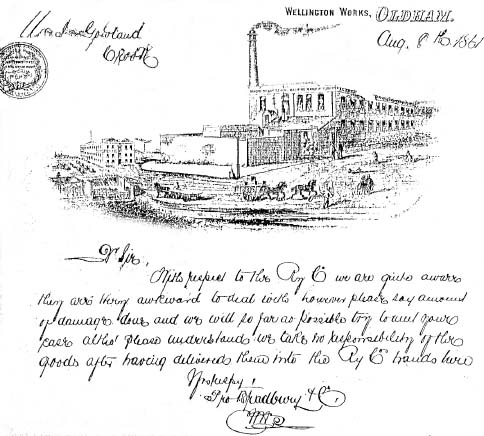 WELLINGTON WORKS, OLDHAM.
Aug. 8th 1861
Dr Sir,
With respect to the Ry Co we are quite aware
they are very awkward to deal with however please say amount
of damage done and we will so far as possible try to meet your
case altho' please understand we take no responsibility of the
goods after having delivered them into the Ry Co hands here
Pro Bradbury & Co